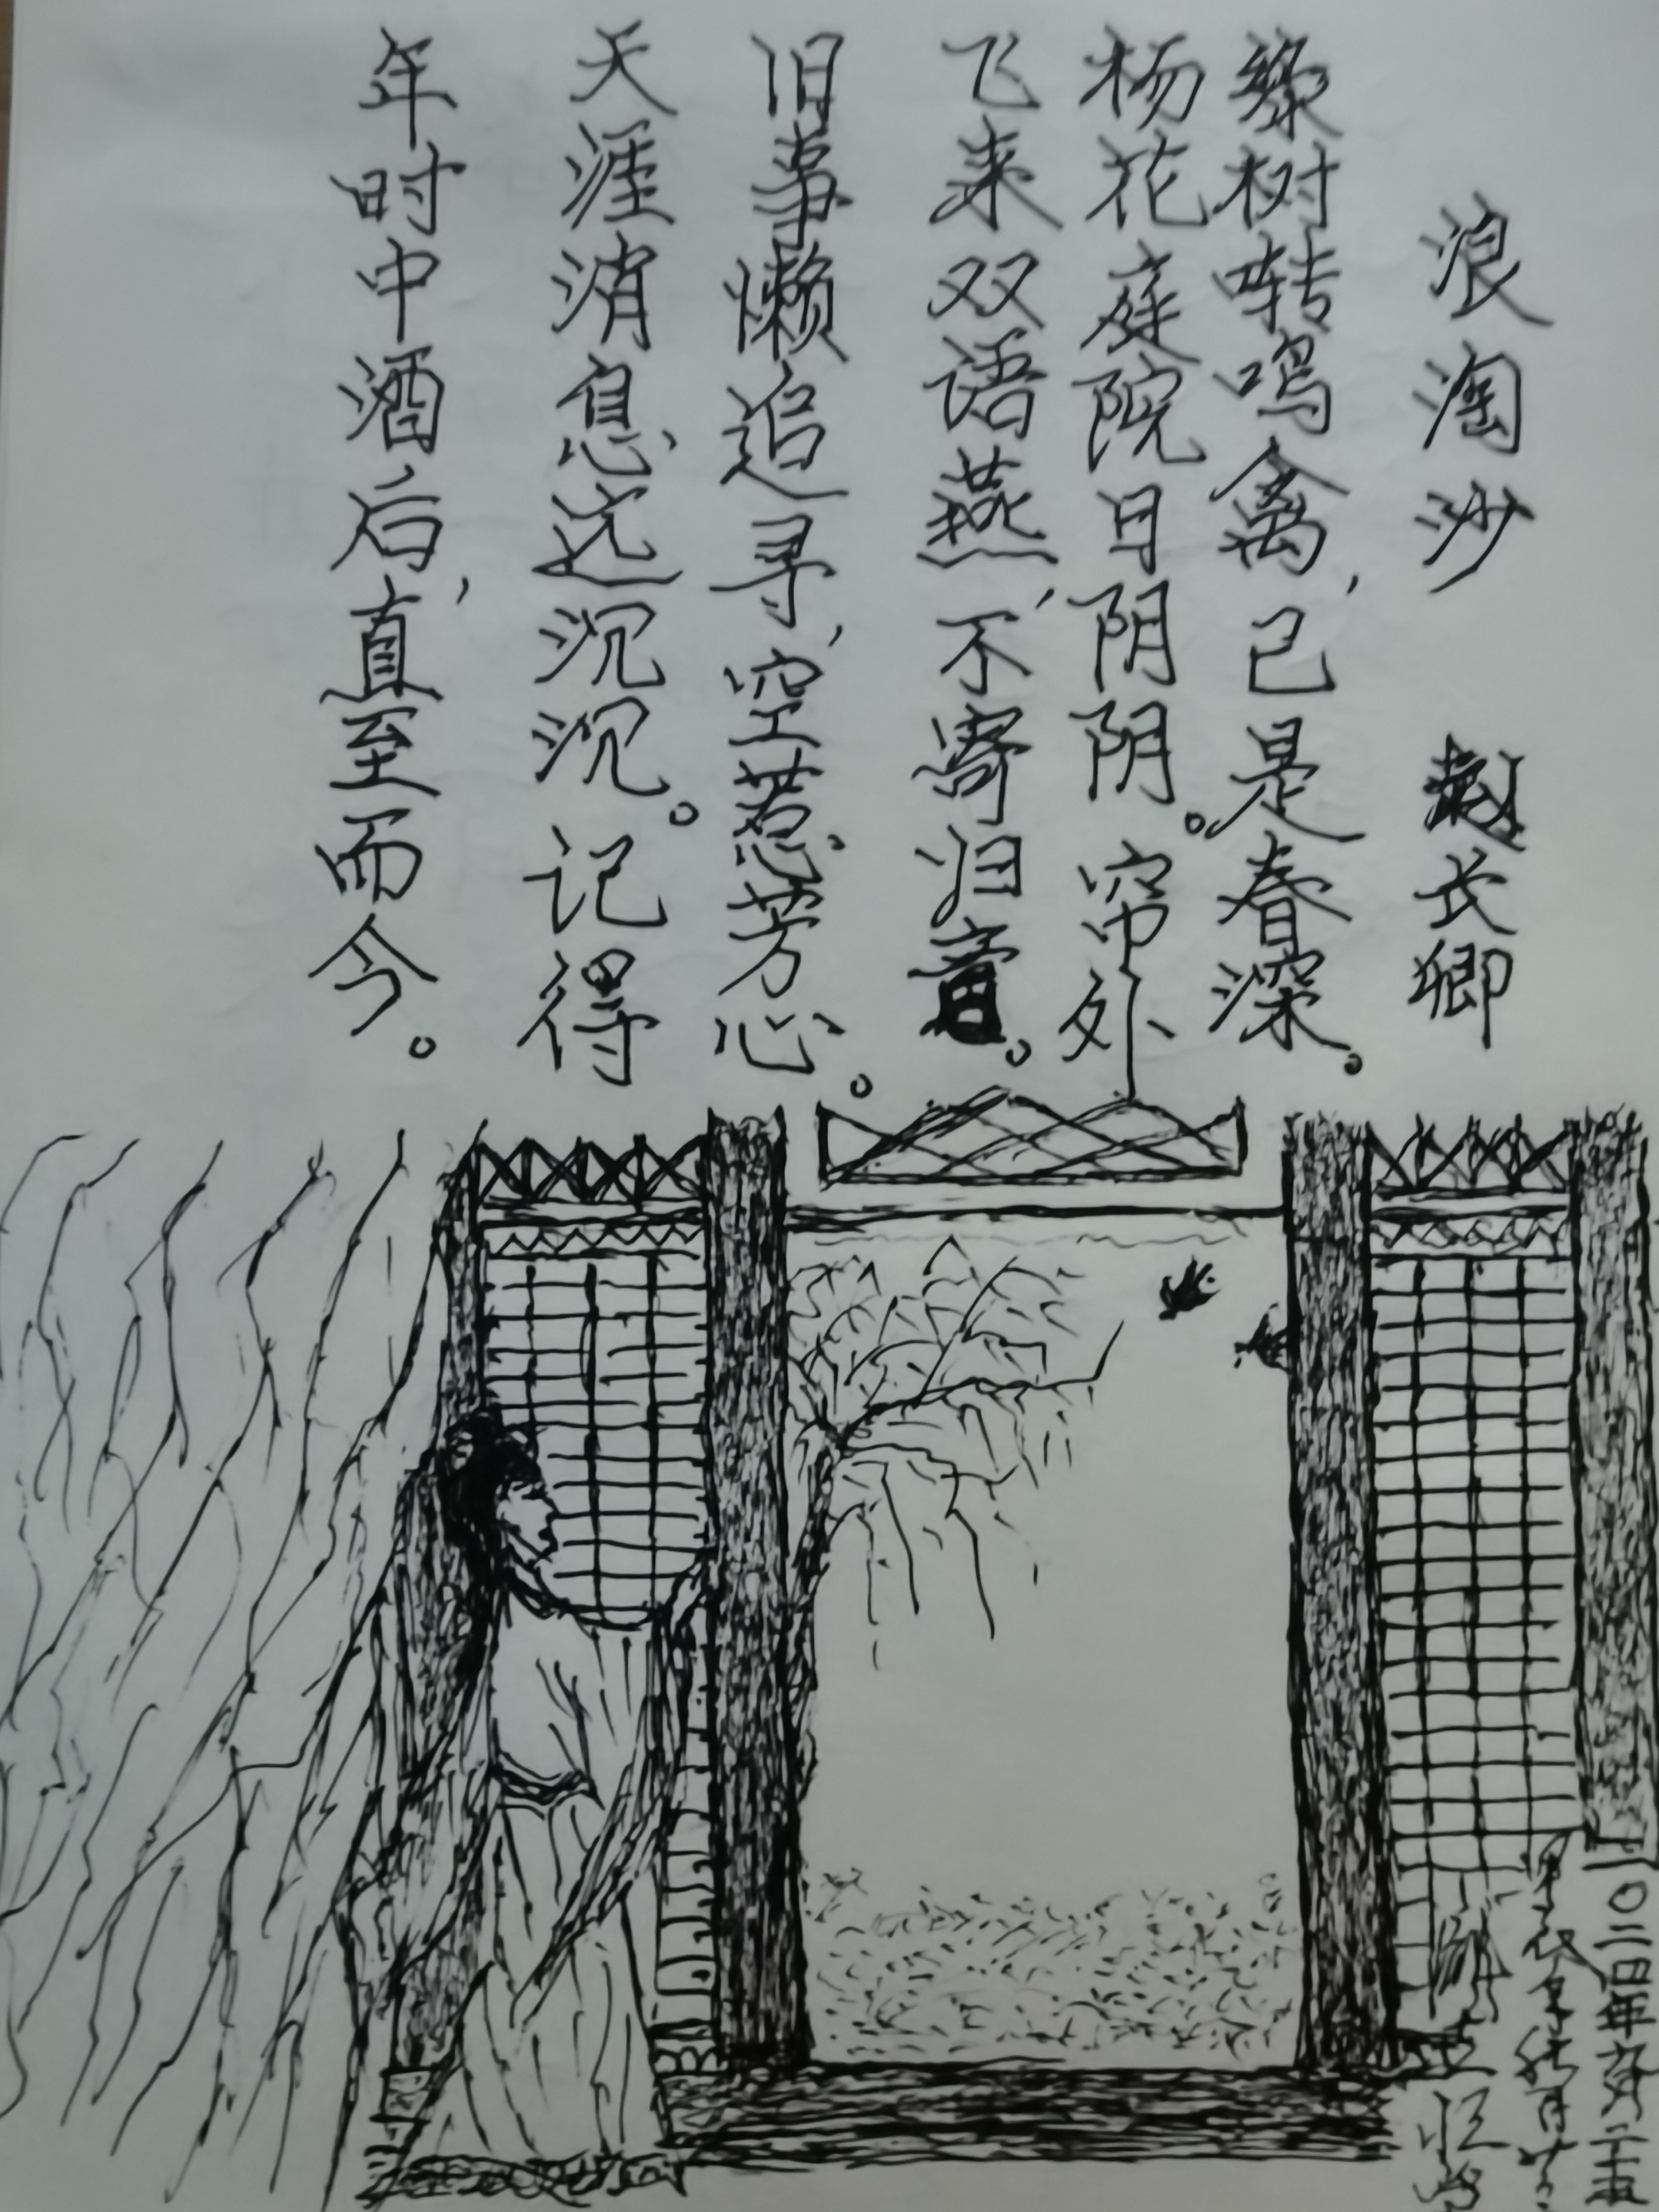 浪淘沙 赵长卿
绿树啭鸣禽，已是春深。
杨花庭院日阴阴。帘外
飞来双语燕，不寄归音。
旧事懒追寻，空惹芳心。
天涯消息远沉沉。记得
年时中酒后，直至而今。
二〇二四年九月二十五